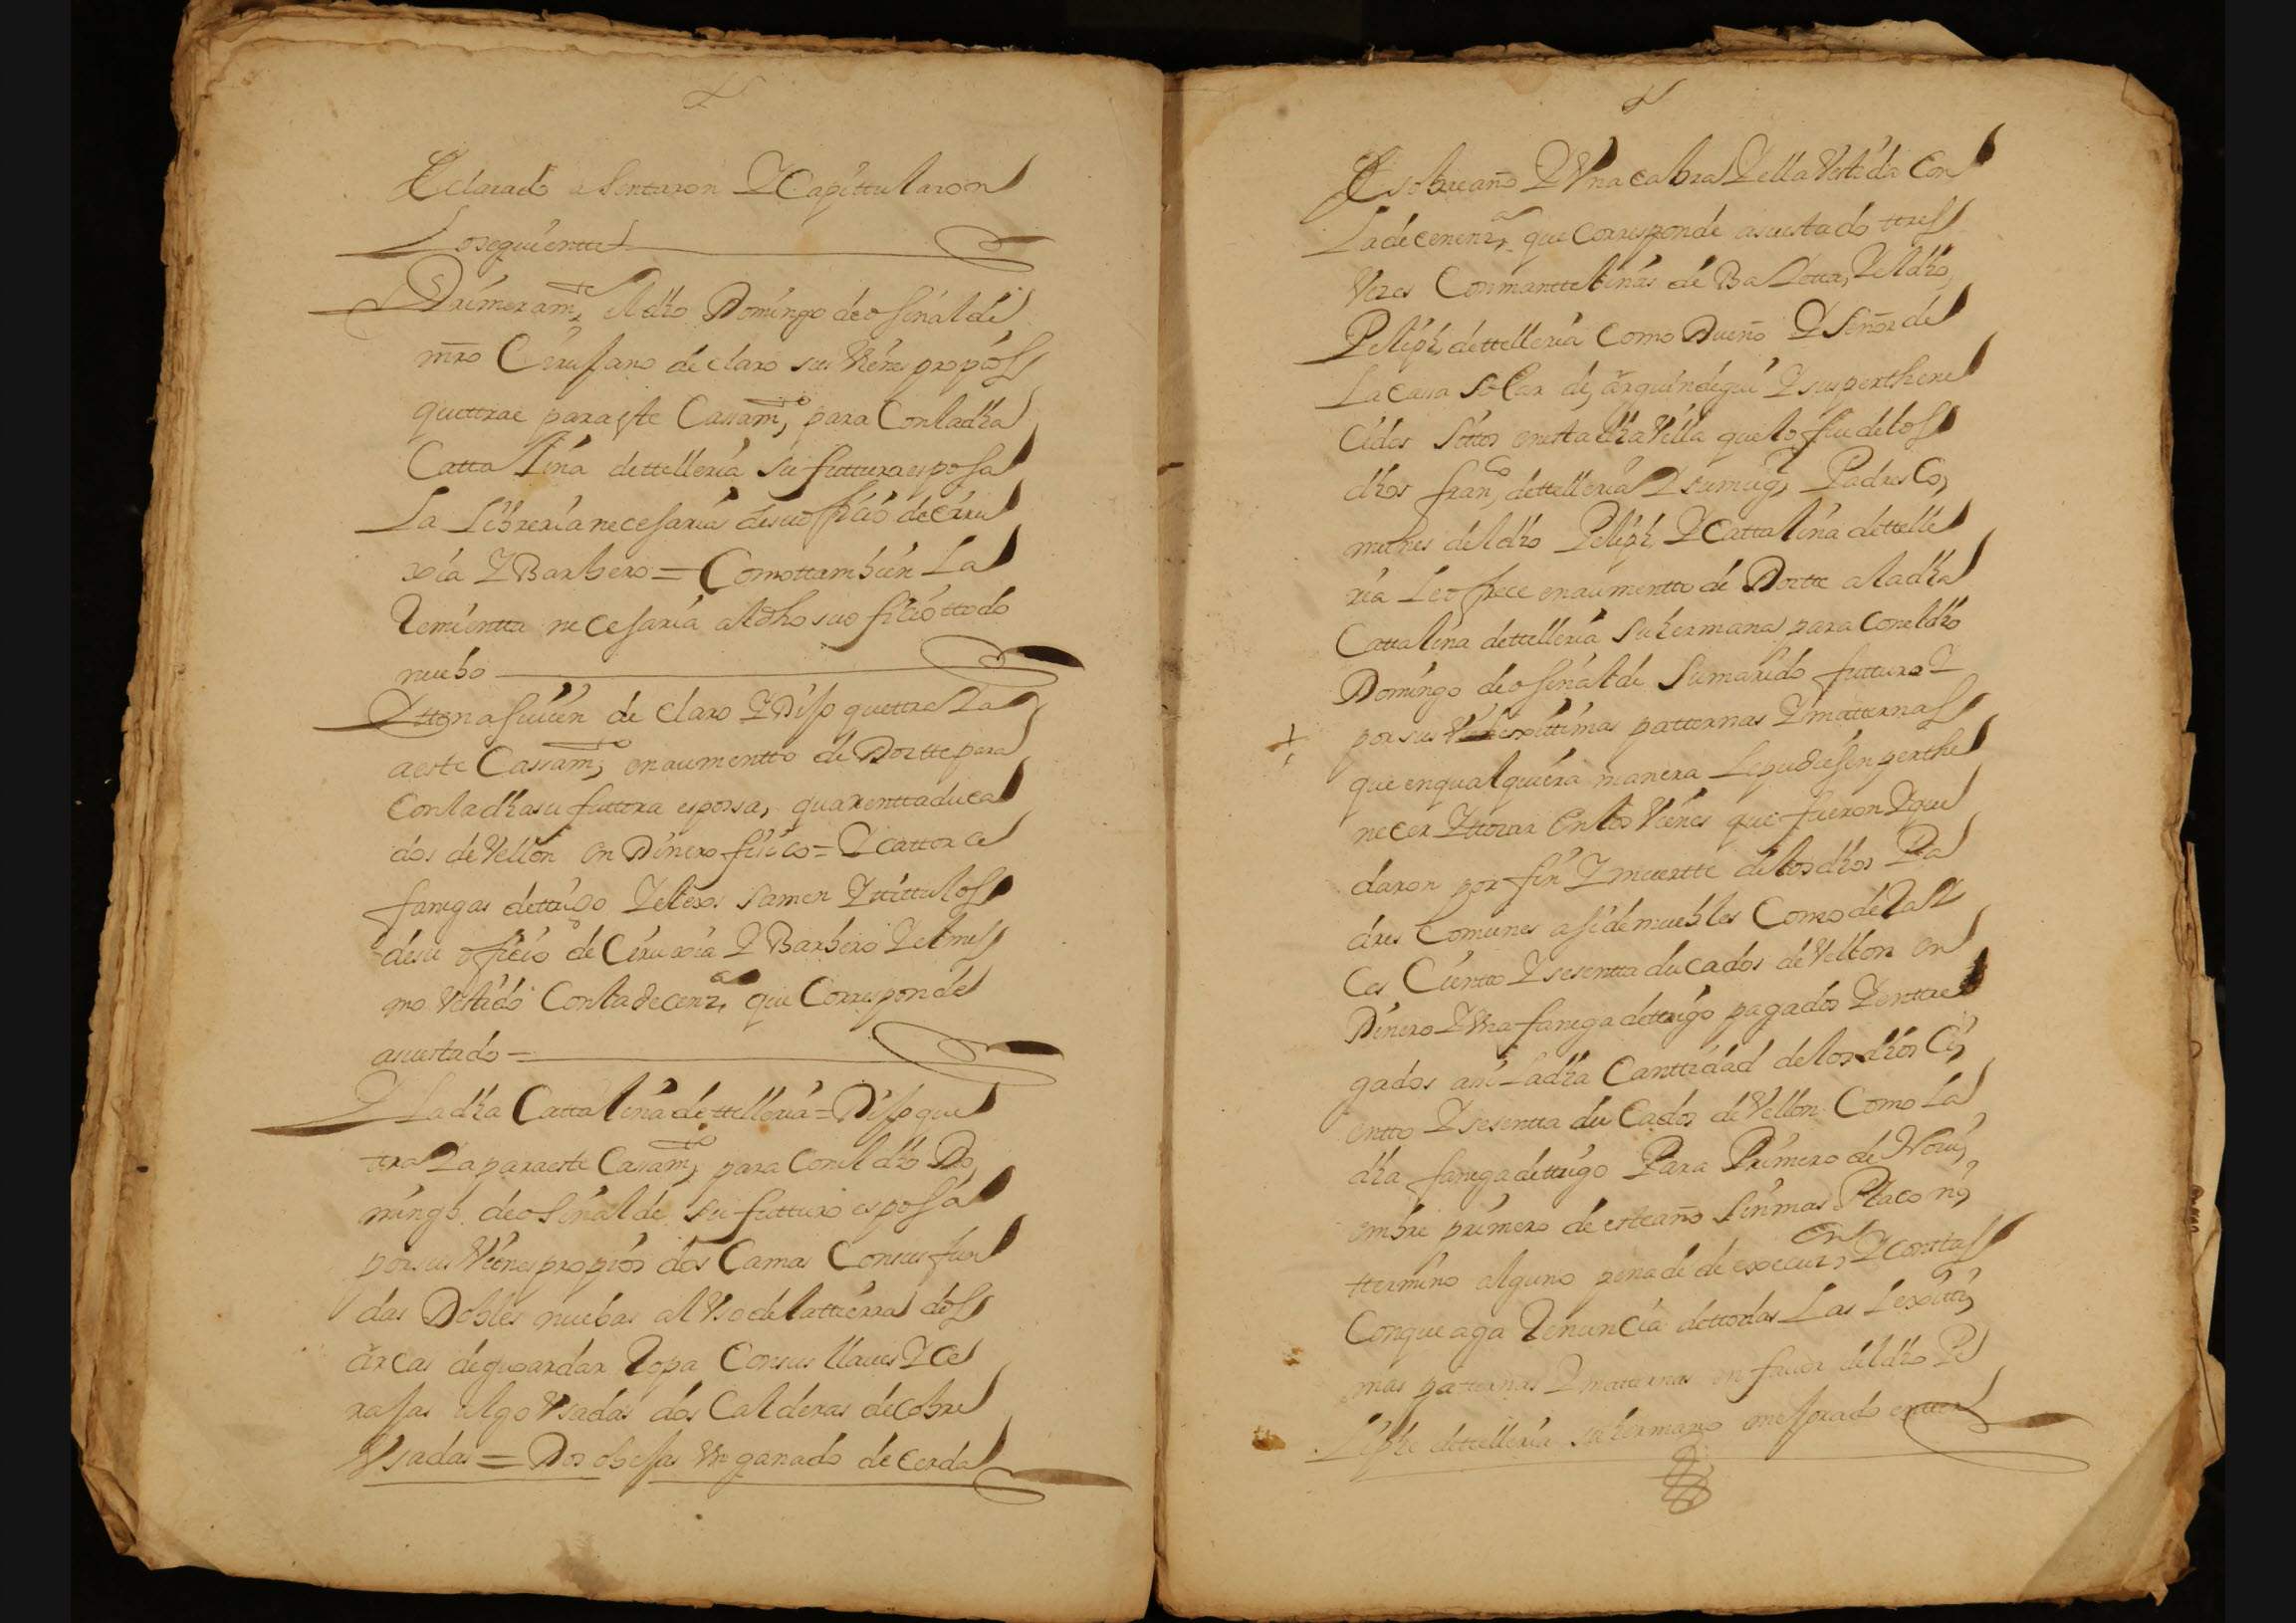 Declarado asentaron Y Capittularon
Loseguientte
Primeramte, el dho Domingo de osinalde
mro Cirujano declaro sus Vienes propios
quettrae para este Cassamto, para Con la dha
Cattalina dettelleria su futtura esposa
La Libreria necesaria de su oficio de ciru
xia Y Barbero = Como ttambien La
Remientta necesaria al dho su oficio ttodo
nuebo
Ytten asimien declaro Y Dijo quettrae Ra
a este Cassamto, en aumentto de Dotte para
Con la dha su futtura esposa, quarentta duca
dos de Vellon en Dinero fisico = Y cattorce
fanegas de ttrigo Y el exsamen Y titulos
de su oficio de Ciruxia Y Barbero Y el mes
mo Vestido Con la decenza, que Corresponde
a su estado =
Y La dha Cattalina de ttelleria = Dijo que
ttraRa para este Casamto, para Con el dho Do
mingo de osinalde su futturo esposo
por sus Vienes propios dos Camas Con sus fun
das Dobles nuebas al Vso de la ttierra dos
arcas de guardar Ropa Con sus llaues Y Ce
rajas algo Vsadas dos Calderas de Cobre
Vsadas = Dos obejas Vn ganado de cerda
De sobreaño Y Vna cabra Y ella Vestida Con
La decenenza, que Corresponde a su estado ttres
Vezes Con manttelinas de Balletta, Y el dho
Pheliphe dettelleria Como Dueño Y Señor de
La Cassa Solar de, arguindegui Y sus perthene
cidos Sittos en esta dha Villa que lo fue de los
dhos franco, dettelleria Y su muger, Padres Co,
munes del dho Pheliphe, Y Cattalina dettelle
ria Le ofrece en aumentto de Dotte a la dha
Cattalina dettelleria Su hermana para Con el dho
Domingo de osinalde Su marido futturo Y
por sus Lexittimas patternas Y matternas
que en qualquiera manera Le pudiesen perthe
necer Y ttocar en los Vienes que fueron Y que
daron por fin Y muertte de los dhos Pa
dres Comunes asi de muebles Como de Ray
Ces Cientto Y sesentta ducados de Vellon en
Dinero Y Vna fanega de ttrigo pagados Y entre
gados asi La dha Canttidad de los dhos Ci,
entto Y sesentta duCados de Vellon Como La
dha fanega dettrigo Para Primero de Novi,
embre primero de este año Sin mas Plaço ni,
ttermino alguno pena de execuzon, Y Costas
Con que aga Renuncia de ttodas Las Lexitti,
mas patternas Y matternas en fauor del dho Phe
liphe dettelleria su hermano mejorado en ter